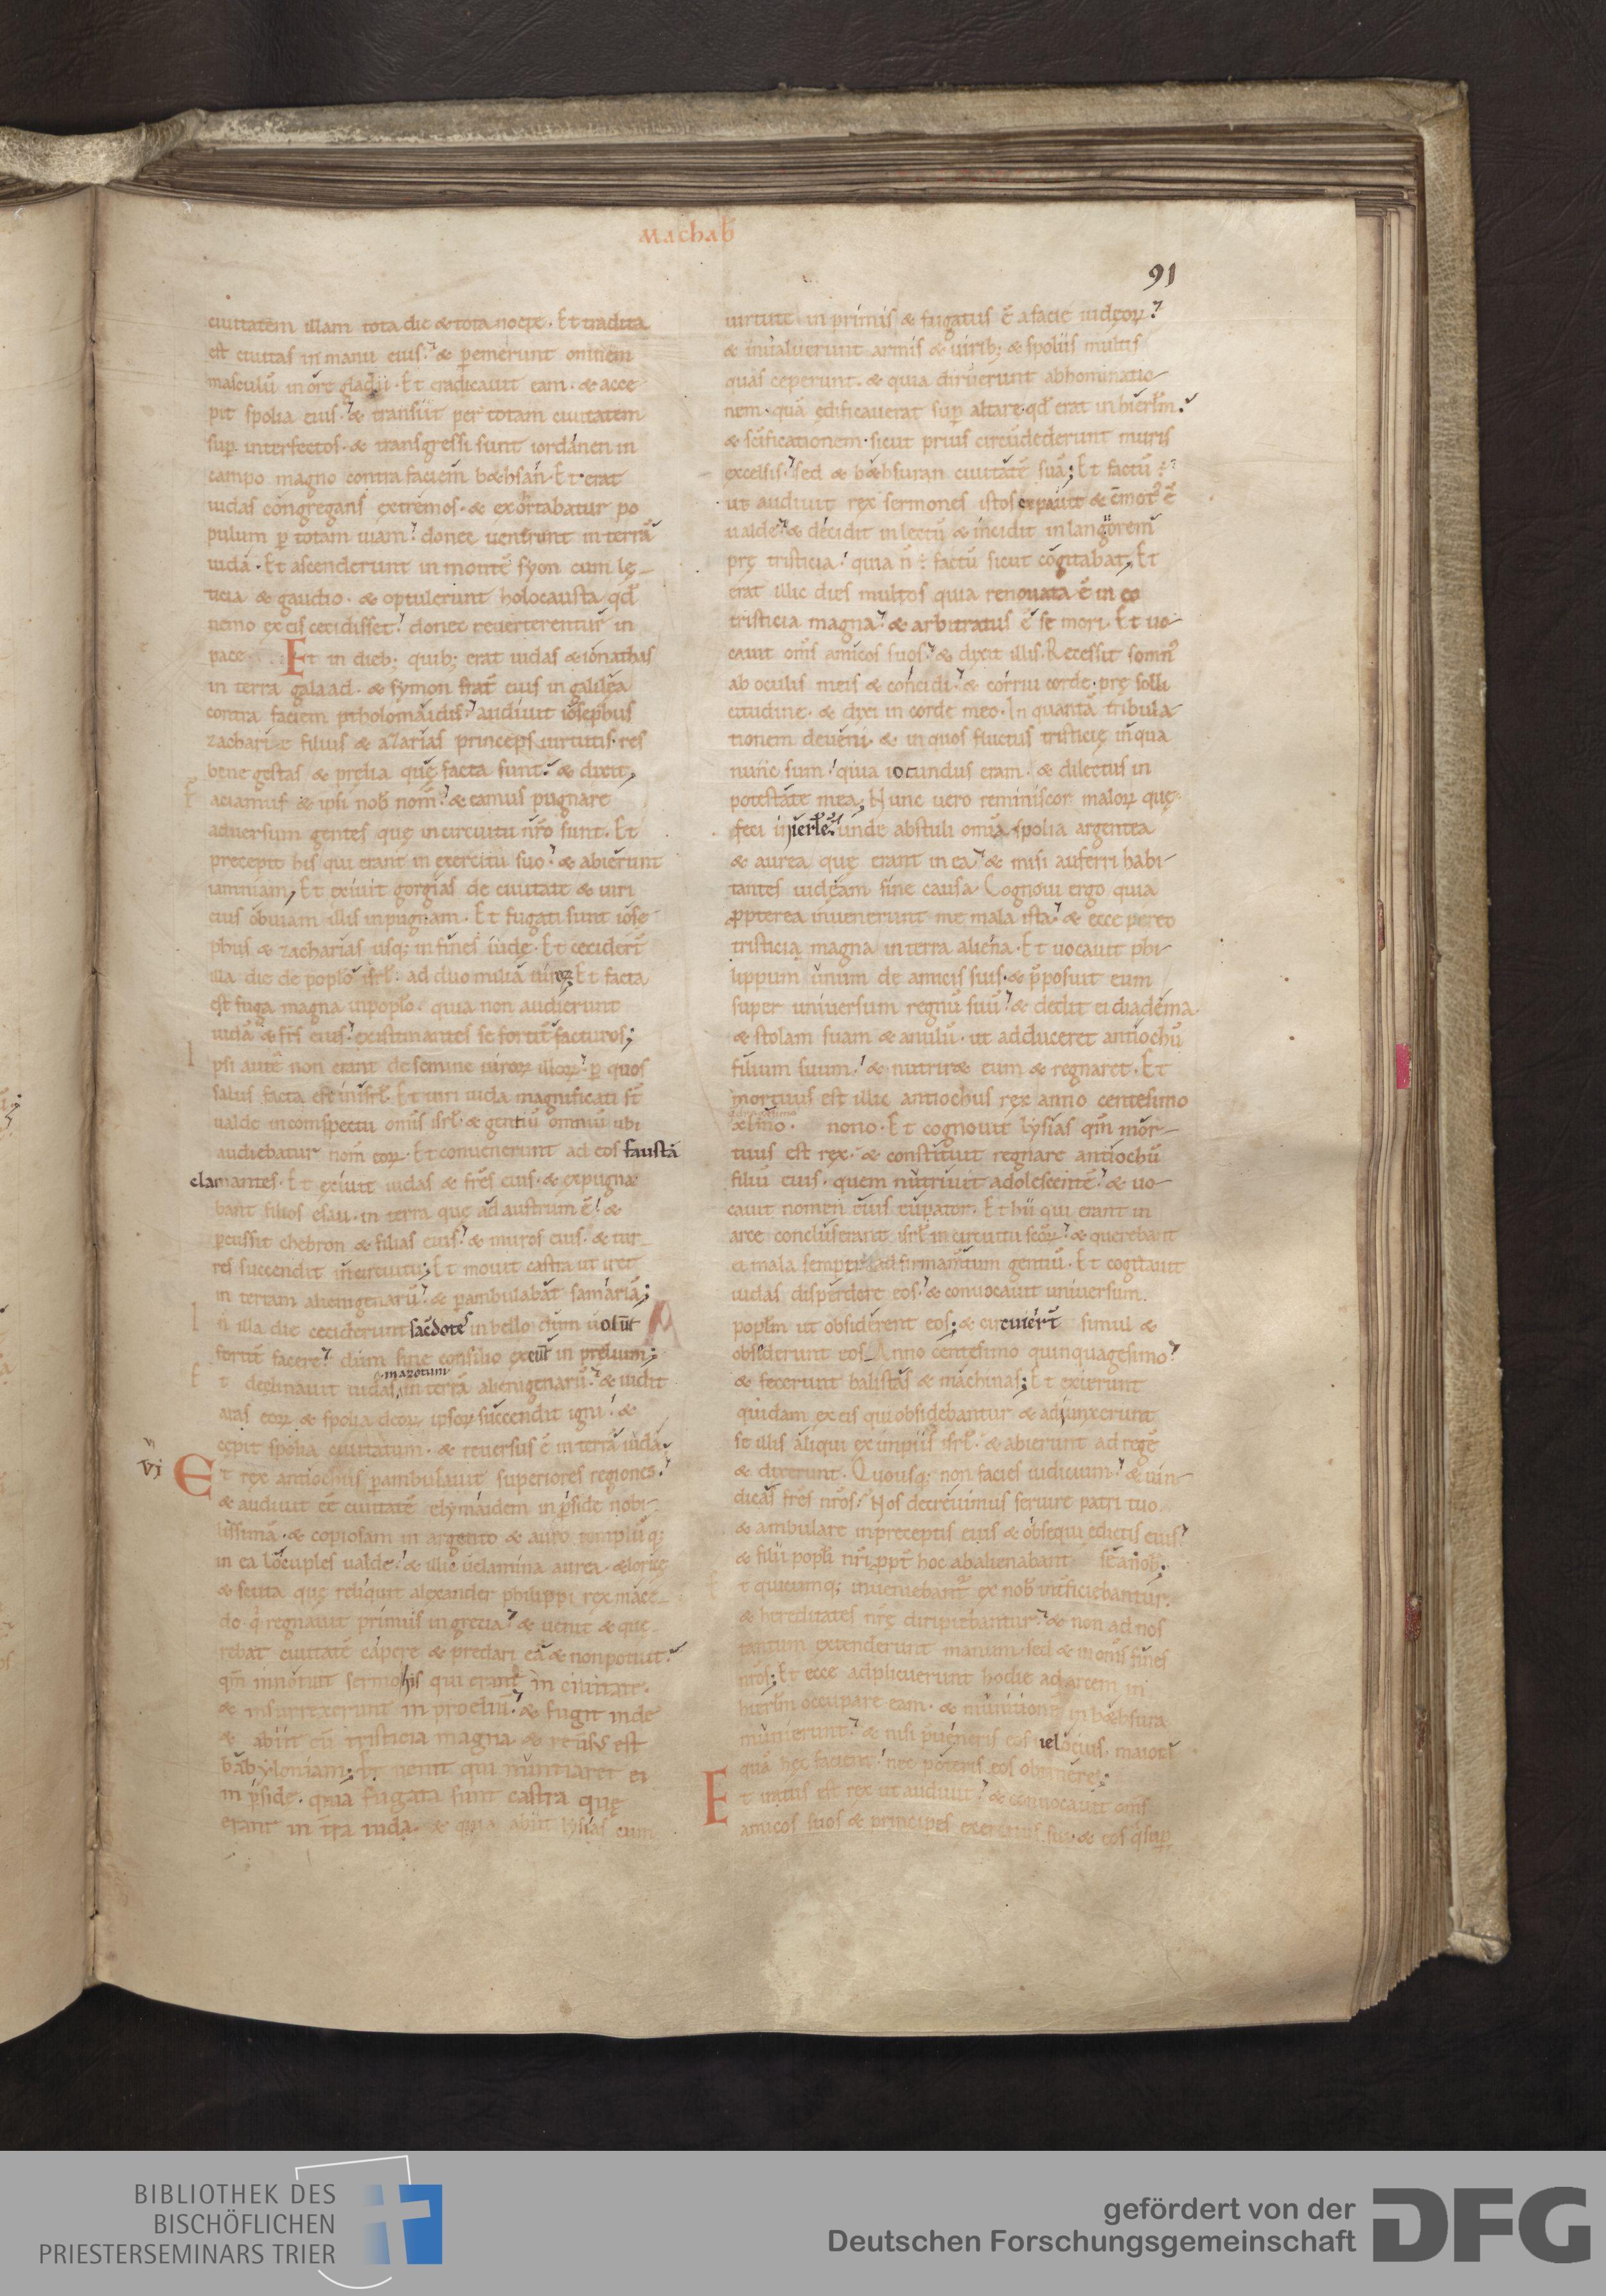 Machab̄
91
ciuitatem illam tota die & tota nocte. Et tradita
est ciuitas in manu eius. & p̱emerunt omnem
masculū in ore gladii. Et eradicauit eam. & acce
pit spolia eius. & transiit per totam ciuitatem
sup̱ interfectos. & transgressi sunt iordanen in
campo magno contra faciem b&hsan. Et erat
iudas congregans extremos. & exortabatur po
pulum p̱ totam uiam. donec uenirent in terrā
iudā. Et ascenderunt in montē syon cum lę
ticia & gaudio. & optulerunt holocausta qd̄
nemo ex eis cecidisset. donec reuerterentur in
pace. Et in dieb; quib; erat iudas & ionathas
in terra galaad. & symon frat̄ eius in galilea
contra faciem ptholomaidis. audiuit iosephus
zacharię filius & azarias princeps uirtutis. res
bene gestas & prelia quę facta sunt. & dixit,
Faciamus & ipsi nob̄ nom̄. & eamus pugnare
aduersum gentes quę in circuitu nr̄o sunt. Et
precepit his qui erant in exercitu suo. & abierunt
iamniam, Et exiuit gorgias de ciuitate & uiri
eius obuiam illis in pugnam. Et fugati sunt iose
phus & zacharias usq; in fines iudę. Et cecider̄
illa die de poplo isrl̄. ad duo milia uiroꝝ Et facta
est fuga magna in poplo. quia non audierunt
iudā & fr̄s eius. existimantes se fortit̄ facturos;
Ipsi autē non erant de semine uiroꝝ illoꝝ. p̱ quos
salus facta est in isrl̄. Et uiri iuda magnificati st̄
ualde in conspectu om̄is isrl̄. & gentiū omniū ubi
audiebatur nom̄ eoꝝ. Et conuenerunt ad eos fausta
clamantes. Et exiuit iudas & fr̄es eius. & expugna
bant filios esau. in terra que ad austrum ē. &
p̱cussit chebron & filias eius. & muros eius. & tur
res succendit in circuitu; Et mouit castra ut iret
in terram alienigenarū. & p̱ambulabat samariā;
In illa die ceciderunt sac̄dotes in bello dum uolūt
fortit̄ facere. dum sine consilio exeūt in prelium;
Et declinauit iudas in azotum in terrā alienigenarū. & diruit
aras eoꝝ & spolia deoꝝ ipsoꝝ succendit igni. &
cepit spolia ciuitatum. & reuersus ē in terrā iuda.
vi
VI Et rex antiochus p̱ambulauit superiores regiones.
& audiuit eē ciuitatē elymaidem in p̱side nobi
lissimā. & copiosam in argento & auro templū q;
in ea locuples ualde. & illic uelamina aurea. & loricę
& scuta quę reliquit alexander philippi rex mace
do q̇ regnauit primus in grecia. & uenit & que
rebat ciuitatē capere & predari eā & non potuit.
qm̄ innotuit sermo his qui erant in ciuitate.
& insurrexerunt in proeliū. & fugit inde
& abiit cū tristicia magna. & reūsus est
babyloniam; Et uenit qui nuntiaret ei
in p̱side. quia fugata sunt castra quę
erant in t̄ra iuda. & quia abiit lysias cum
uirtute in primis & fugatus ē a facie iudęoꝝ.
& inualuerunt armis & uirib; & spoliis multis
quas ceperunt. & quia diruerunt abhominatio
nem. quā ędificauerat sup̱ altare. qd̄ erat in hierl̄m.
& sc̄ificationem. sicut prius circūdederunt muris
excelsis. sed & b&hsuran ciuitatē suā; Et factū ē.
ut audiuit rex sermones istos expauit & c̄mot' ē
ualde. & decidit in lectū & incidit in langorem
prę tristicia. quia n̄ ē factū sicut cogitabat, Et
erat illic dies multos quia renouata ē in eo
tristicia magna. & arbitratus ē se mori. Et uo
cauit om̄s amicos suos. & dixit illis. Recessit somn'
ab oculis meis & concidi. & corrui corde. prę solli
citudine. & dixi in corde meo. In quantā tribula
tionem deueni. & in quos fluctus tristicię in qua
nunc sum. quia iocundus eram. & dilectus in
potestate mea, Nunc uero reminiscor maloꝝ quę
feci in ierl̄e. unde abstuli omīa spolia argentea
& aurea quę erant in ea. & misi auferri habi
tantes iudęam sine causa. Cognoui ergo quia
p̱pterea inuenerunt me mala ista. & ecce pereo
tristicia magna in terra aliena. Et uocauit phi
lippum unum de amicis suis. & p̄posuit eum
super uniuersum regnū suū. & dedit ei diadema
& stolam suam & anulū. ut adduceret antiochū
filium suum. & nutrir& eum & regnaret. Et
mortuus est illic antiochus rex anno centesimo
xl̄mo. nono. Et cognouit lysias qm̄ mor
tuus est rex. & constituit regnare antiochū
filiū eius. quem nutriuit adolescentē. & uo
cauit nomen eius eupator. Et hii qui erant in
arce concluserant isrl̄ in circuitu sc̄oꝝ. & querebant
ei mala semper & ad firmamtum gentiū. Et cogitauit
iudas disperdere eos. & conuocauit uniuersum
popl̄m ut obsiderent eos; & conuenēr̄t simul &
obsiderunt eos Anno centesimo quinquagesimo.
& fecerunt balistas & machinas; Et exierunt
quidam ex eis qui obsidebantur & adiunxerunt
se illis aliqui ex impiis isrl̄. & abierunt ad regē
& dixerunt. Quousq; non facies iudicium. & uin
dicas fr̄es nr̄os. Nos decreuimus seruire patri tuo
& ambulare in preceptis eius & obsequi edictis eius.
& filii popl̄i nr̄i p̱pt̄ hoc abalienabant se a nob̄;
Et quicumq; inueniebant̄ ex nob̄ int̄ficiebantur.
& hereditates nr̄ę diripiebantur. & non ad nos
tantum extenderunt manum. sed & in om̄s fines
nr̄os; Et ecce adplicuerunt hodie ad arcem in
hierl̄m occupare eam. & munitionē in b&hsura
munierunt. & nisi p̄ueneris eos uelocius. maiora
quā hęc facient. nec poteris eos obtinere;
Et iratus est rex ut audiuit. & conuocauit om̄s
amicos suos & principes exercitus sui. & eos q̇ sup̱
BIBLIOTHEK DES
BISCHÖFLICHEN
PRIESTERSEMINARS TRIER
gefördert von der
Deutschen Forschungsgemeinschaft
DFG